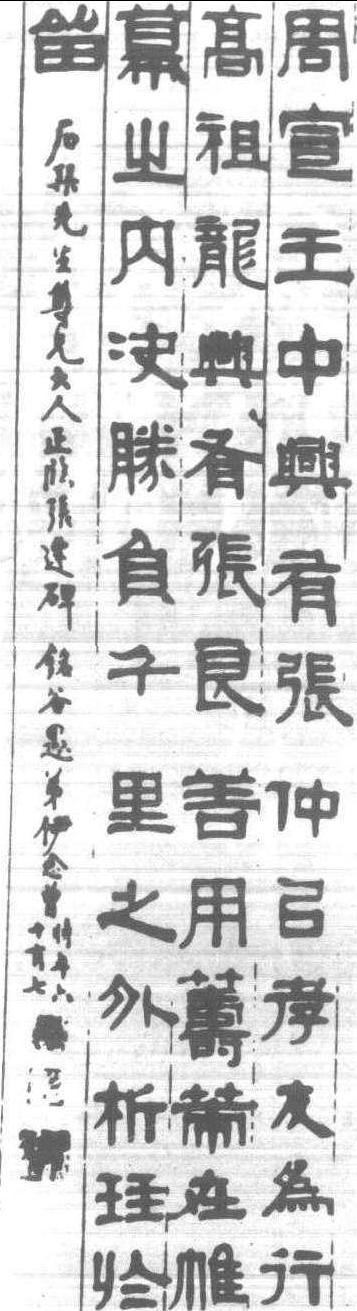 周宣王中興有張仲以孝友為行
高祖龍興有張良善用籌策在帷
幕之内決勝負千里之外析珪於
留
石孫先生尊兄大人正臨張遷碑 銘谷愚弟伊念曾時年六十有七